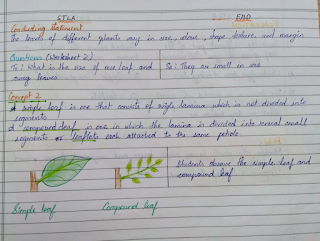 STLA EAO
Concluding Statement
The leaves of different plants vary in size, colour, shape, texture and margin
Questions (Worksheet 2)
Ts: What is the size of rose leaf and So: They are small in size
curry leaves
Concept 2
A simple leaf is one that consists of single lamina which is not divided into
segments
A compound leaf is one in which the lamina is divided into several small
segments or leaflets each attached to the same petiole.
Students observe the simple leaf and
compound leaf
Simple leaf Compound leaf